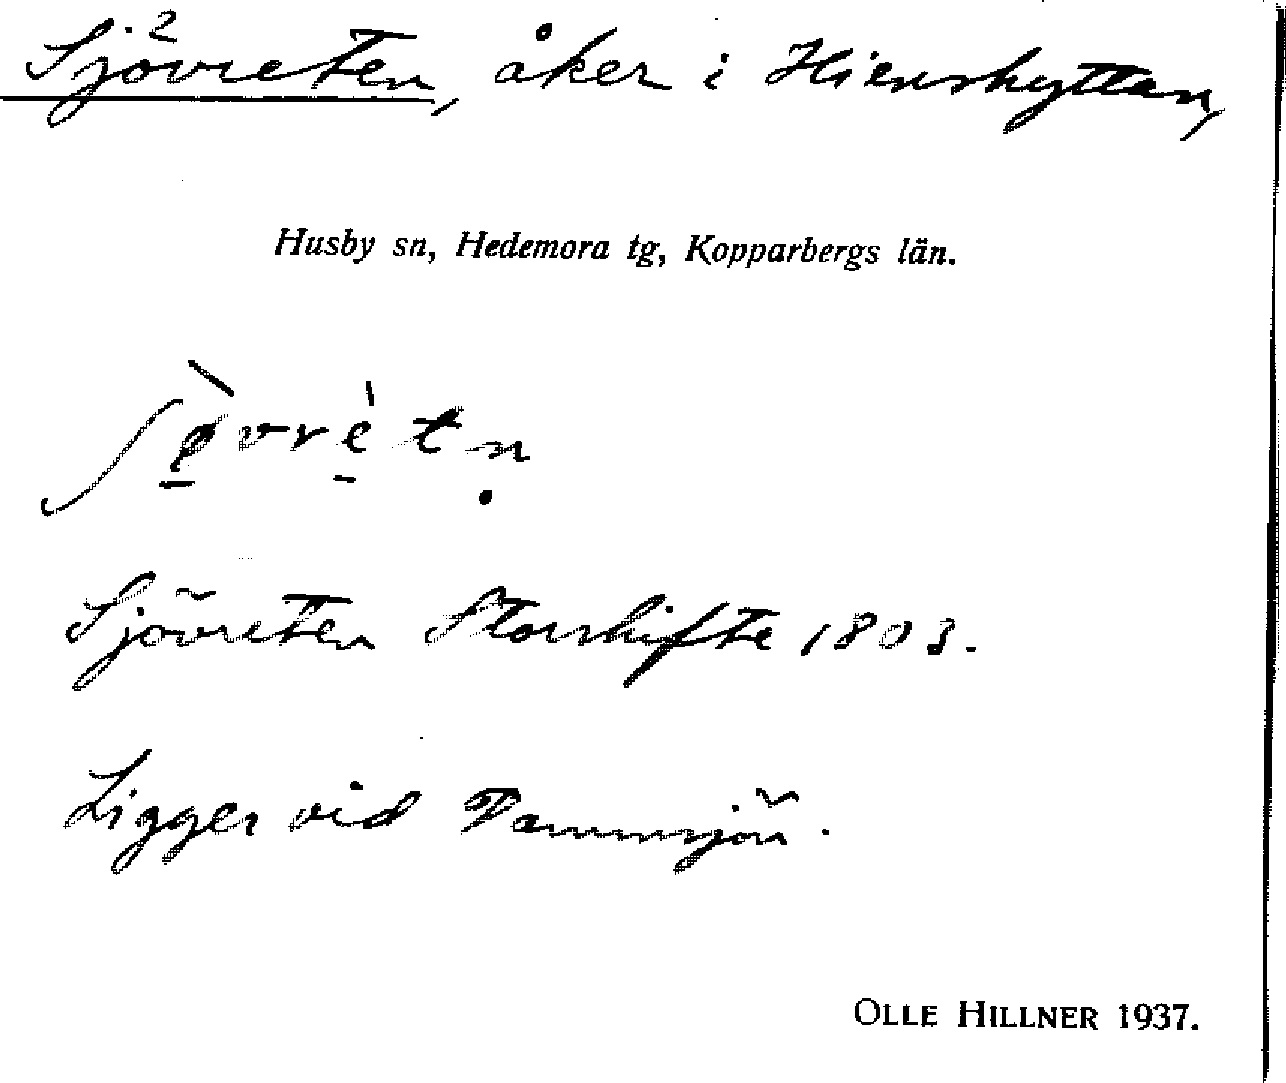 Sjövreten, åker i Hienshyttan,
Husby sn, Hedemora tg, Kopparbergs län.
ʃø̠̀vrè̠tṇ
Sjövreten Storskifte 1803.
Ligger vid
OLLE HILLNER 1937.